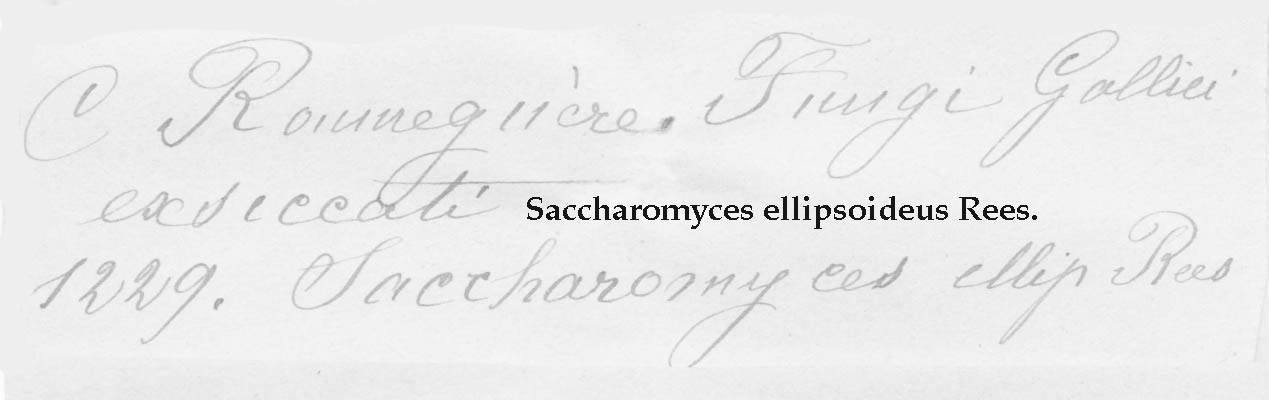 C Roumeguère. Fungi Gallici
exsiccati
Saccharomyces ellipsoideus Rees.
1229. Saccharomyces ellip Rees